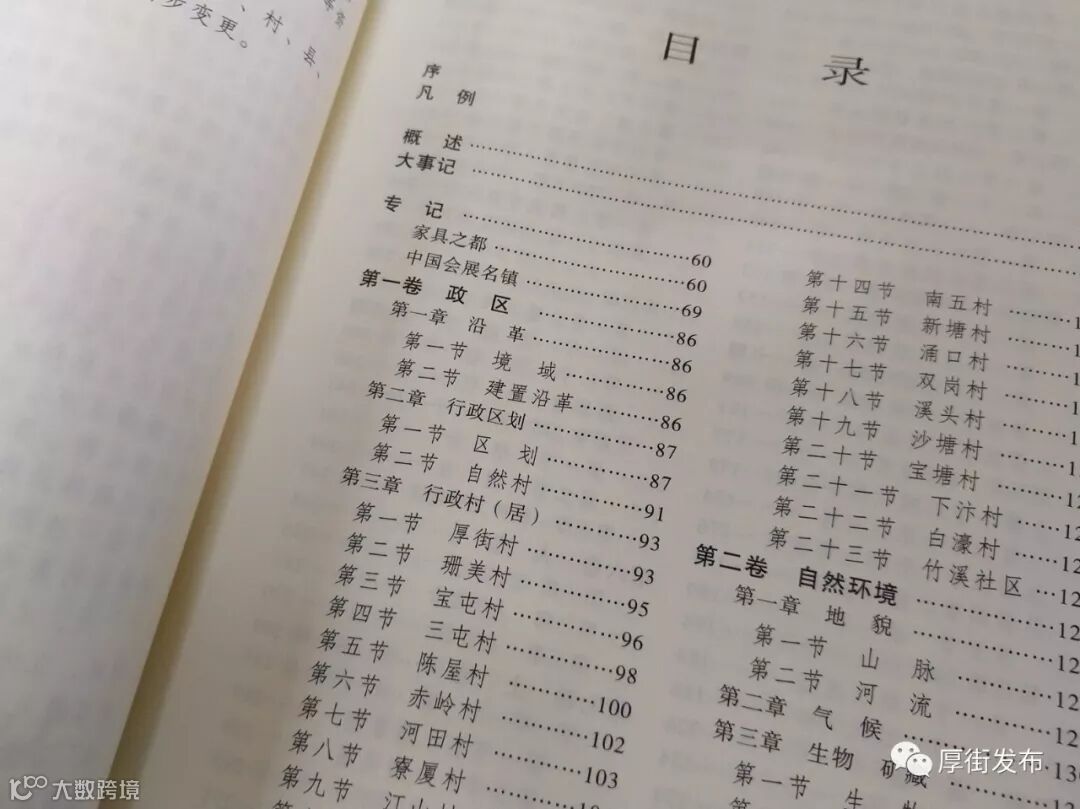 步变更。
、村、县、
目 录
序
凡 例
概 述
大事记
专 记 60
家具之都 60
中国会展名镇 69
第一卷 政 区 86
第一章 沿 革 86
第一节 境 域 86
第二节 建置沿革 86
第二章 行政区划 87
第一节 区 划 87
第二节 自然村 91
第三章 行政村（居） 93
第一节 厚街村 93
第二节 珊美村 95
第三节 宝屯村 96
第四节 三屯村 98
第五节 陈屋村 100
第六节 赤岭村 102
第七节 河田村 103
第八节 寮厦村
第九节
第十四节 南五村
第十五节 新塘村
第十六节 涌口村
第十七节 双岗村
第十八节 溪头村
第十九节 沙塘村
第二十节 宝塘村
第二十一节 下汴村
第二十二节 白濠村
第二十三节 竹溪社区
第二卷 自然环境
第一章 地 貌
第一节 山 脉
第二节 河 流
第二章 气 候
第三章 生物 矿藏
第一节 生
厚街发布
大数跨境